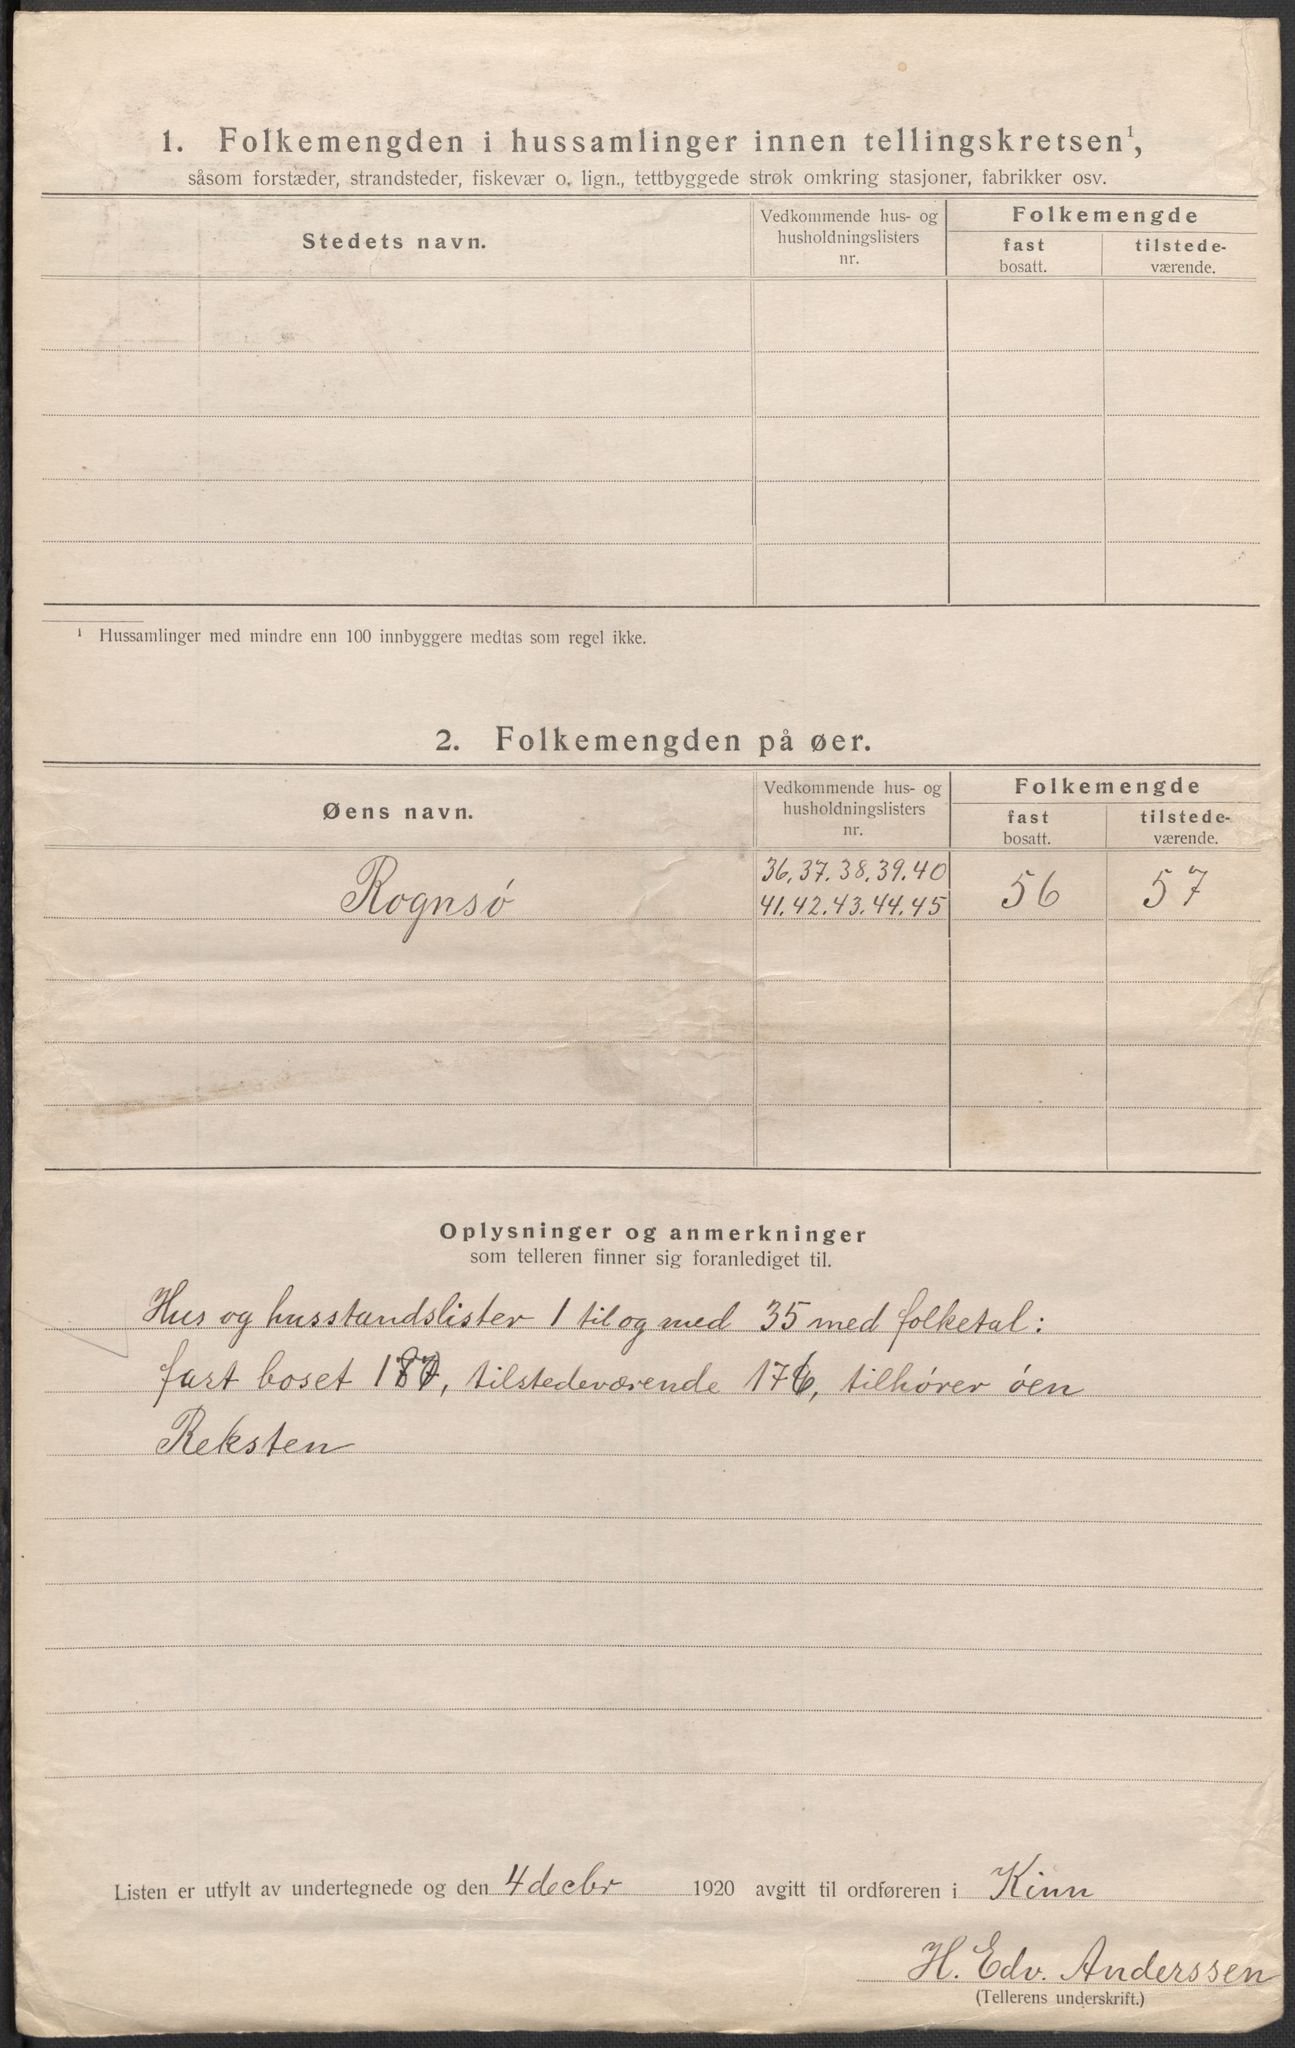 1. Folkemengden i hussamlinger innen tellingskretsen¹,
såsom forstæder, strandsteder, fiskevær o. lign., tettbyggede strøk omkring stasjoner, fabrikker osv.
Stedets navn.
Vedkommende hus- og
husholdningslisters
nr.
Folkemengde
fast
bosatt.
tilstede-
værende.
¹ Hussamlinger med mindre enn 100 innbyggere medtas som regel ikke.
2. Folkemengden på øer.
Øens navn.
Vedkommende hus- og
husholdningslisters
nr.
Folkemengde
fast
bosatt.
tilstede-
værende.
36. 37. 38. 39. 40
Rognsø 41. 42. 43. 44. 45 56 57
Oplysninger og anmerkninger
som telleren finner sig foranlediget til.
Hus og husstandslister 1 til og med 35 med folketal:
fast boset, tilstedeværende 176, tilhører øen
Reksten
Listen er utfylt av undertegnede og den 4 decbr 1920 avgitt til ordføreren i Kinn
H. Edv. Anderssen
(Tellerens underskrift.)